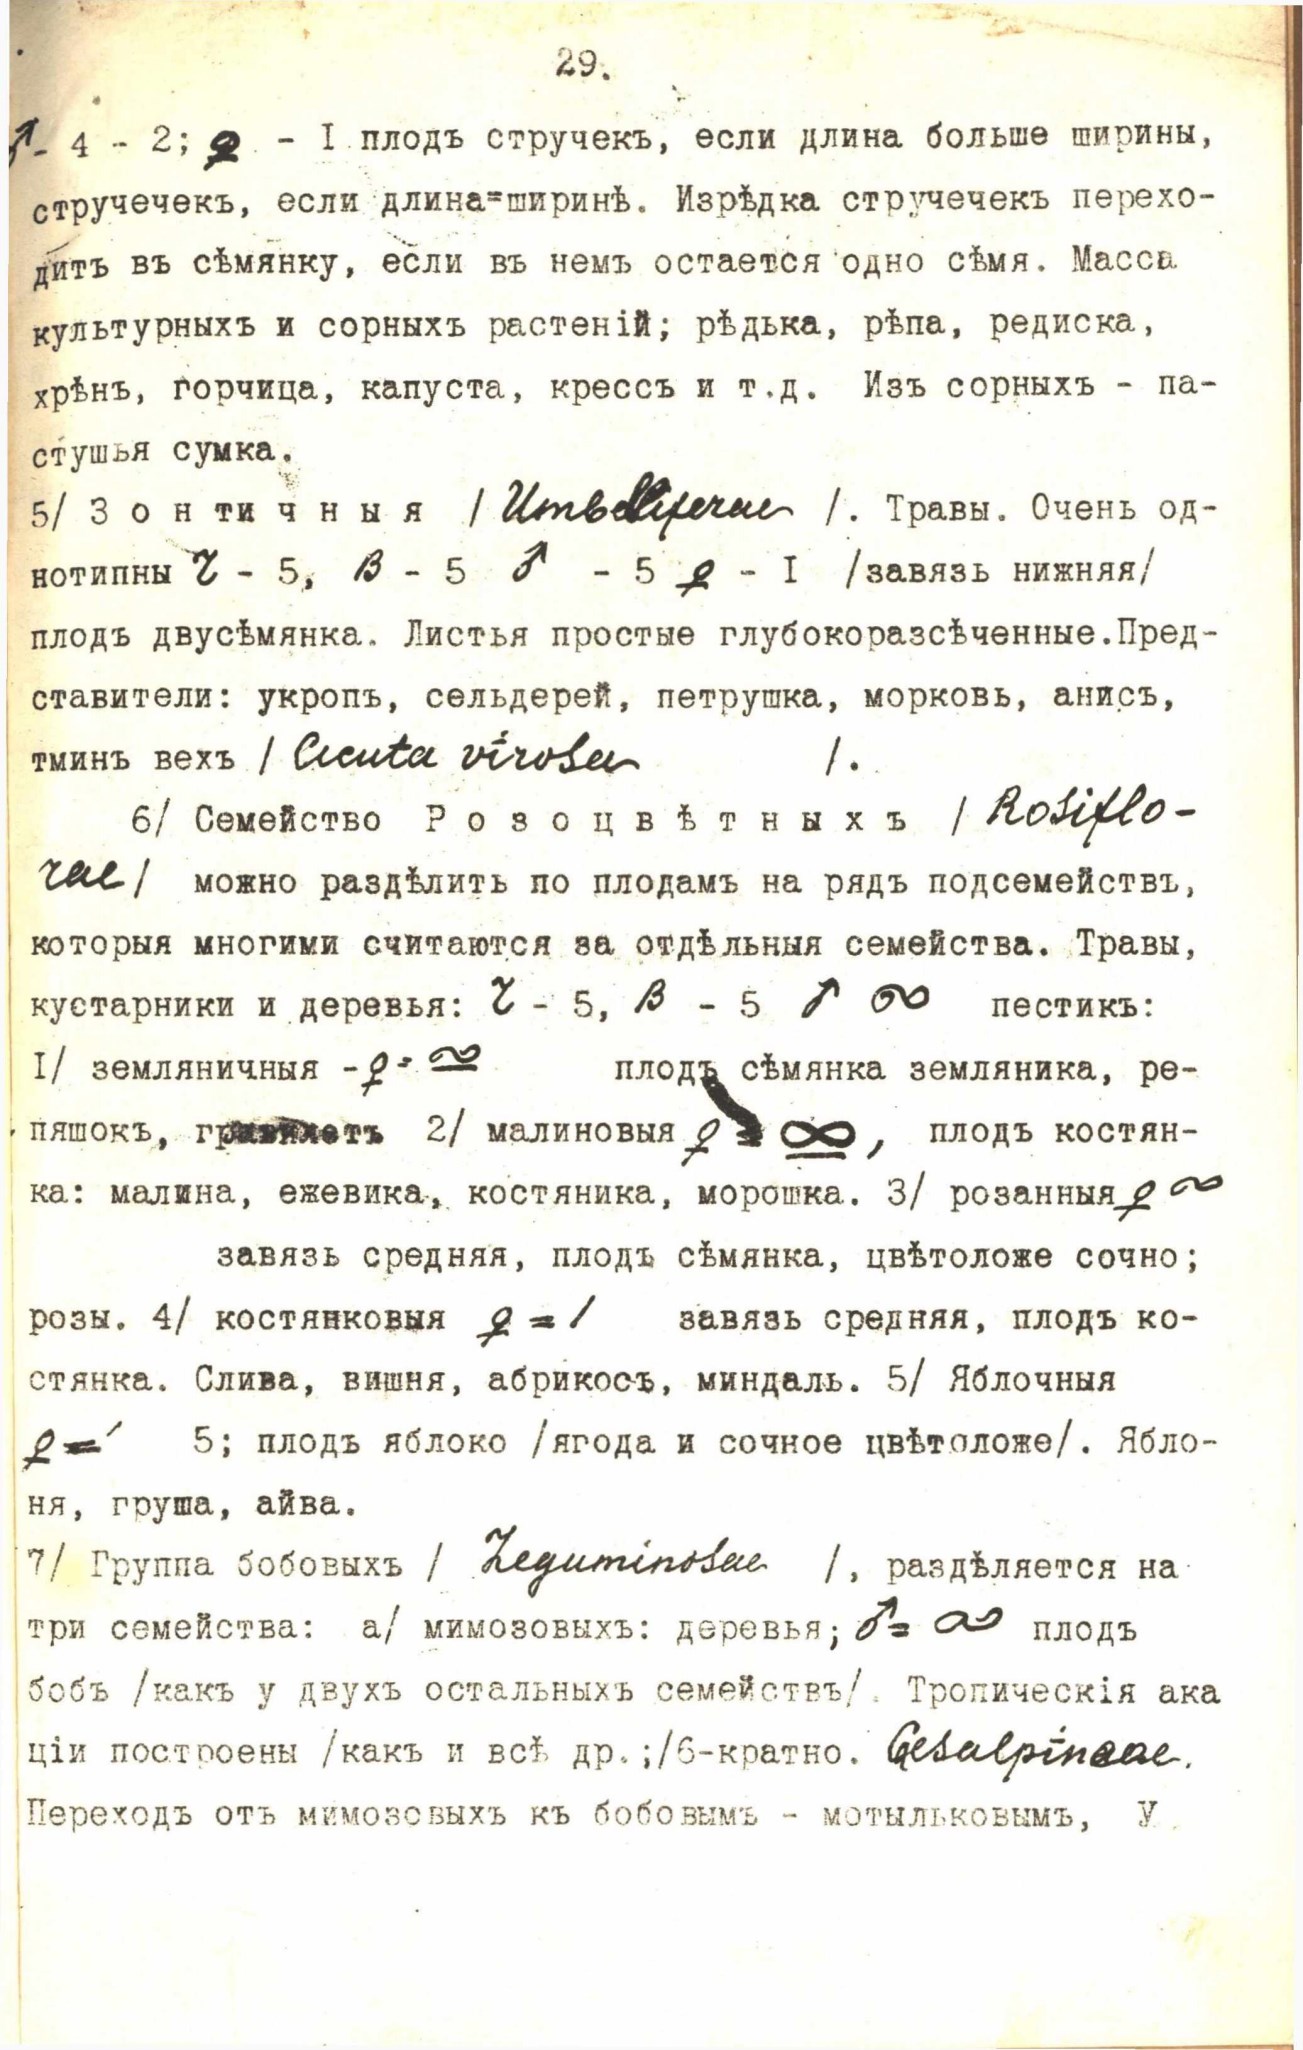 29.
♂ - 4 - 2; ♀ - I плодъ стручекъ, если длина больше ширины,
стручечекъ, если длина=ширинѣ. Изрѣдка стручечекъ перехо-
дитъ въ сѣмянку, если въ немъ остается одно сѣмя. Масса
культурныхъ и сорныхъ растенiй; рѣдька, рѣпа, редиска,
хрѣнъ, горчица, капуста, крессъ и т.д. Изъ сорныхъ - па-
стушья сумка.
5/ З о н т и ч н ы я / Umbelliferae /. Травы. Очень од-
нотипны Ч - 5, В - 5 ♂ - 5 ♀ - I /завязь нижняя/
плодъ двусѣмянка. Листья простые глубокоразсѣченные.Пред-
ставители: укропъ, сельдерей, петрушка, морковь, анисъ,
тминъ вехъ / Cicuta virosa /.
6/ Семейство Р о з о ц в ѣ т н ы х ъ / Rosiflo-
rae / можно раздѣлить по плодамъ на рядъ подсемействъ,
которыя многими считаются за отдѣльныя семейства. Травы,
кустарники и деревья: Ч - 5, В - 5 ♂ ∞ пестикъ:
I/ земляничныя - ♀ = ∞ плодъ сѣмянка земляника, ре-
пяшокъ, гравилетъ 2/ малиновыя ♀ = ∞, плодъ костян-
ка: малина, ежевика, костяника, морошка. 3/ розанныя ♀ ∞
завязь средняя, плодъ сѣмянка, цвѣтоложе сочно;
розы. 4/ костянковыя ♀ = 1 завязь средняя, плодъ ко-
стянка. Слива, вишня, абрикосъ, миндаль. 5/ Яблочныя
♀ = 5; плодъ яблоко /ягода и сочное цвѣтоложе/. Ябло-
ня, груша, айва.
7/ Группа бобовыхъ / Leguminosae /, раздѣляется на
три семейства: а/ мимозовыхъ: деревья; ♂ = ∞ плодъ
бобъ /какъ у двухъ остальныхъ семействъ/. Тропическiя ака
цiи построены /какъ и всѣ др.;/6-кратно. Cesalpineae.
Переходъ отъ мимозовыхъ къ бобовымъ - мотыльковымъ, У